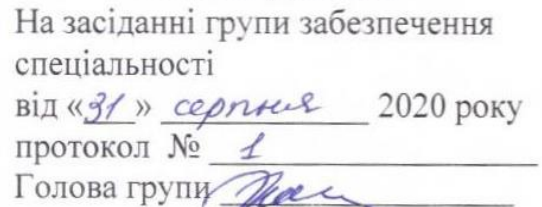 На засіданні групи забезпечення
спеціальності
від «31» серпня 2020 року
протокол № 1
Голова групи